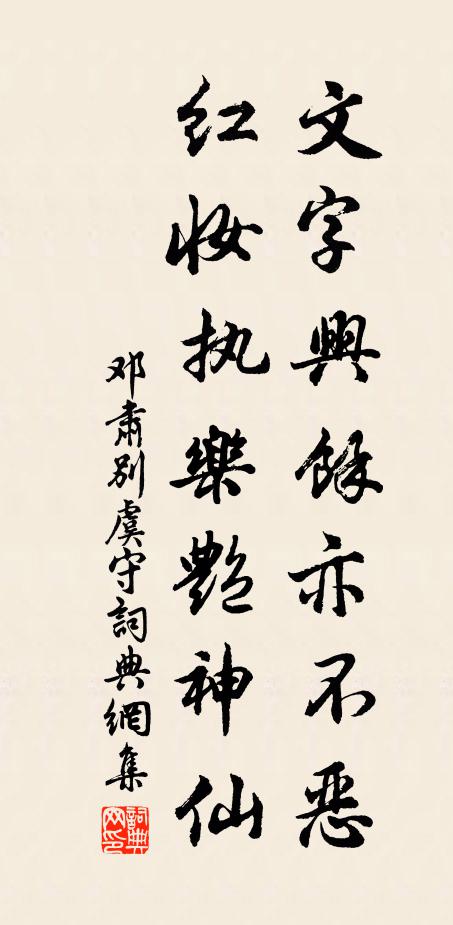 文字興餘亦不惡
红妆执樂艷神仙
邓肅别虞守詞典網集
詞典網印